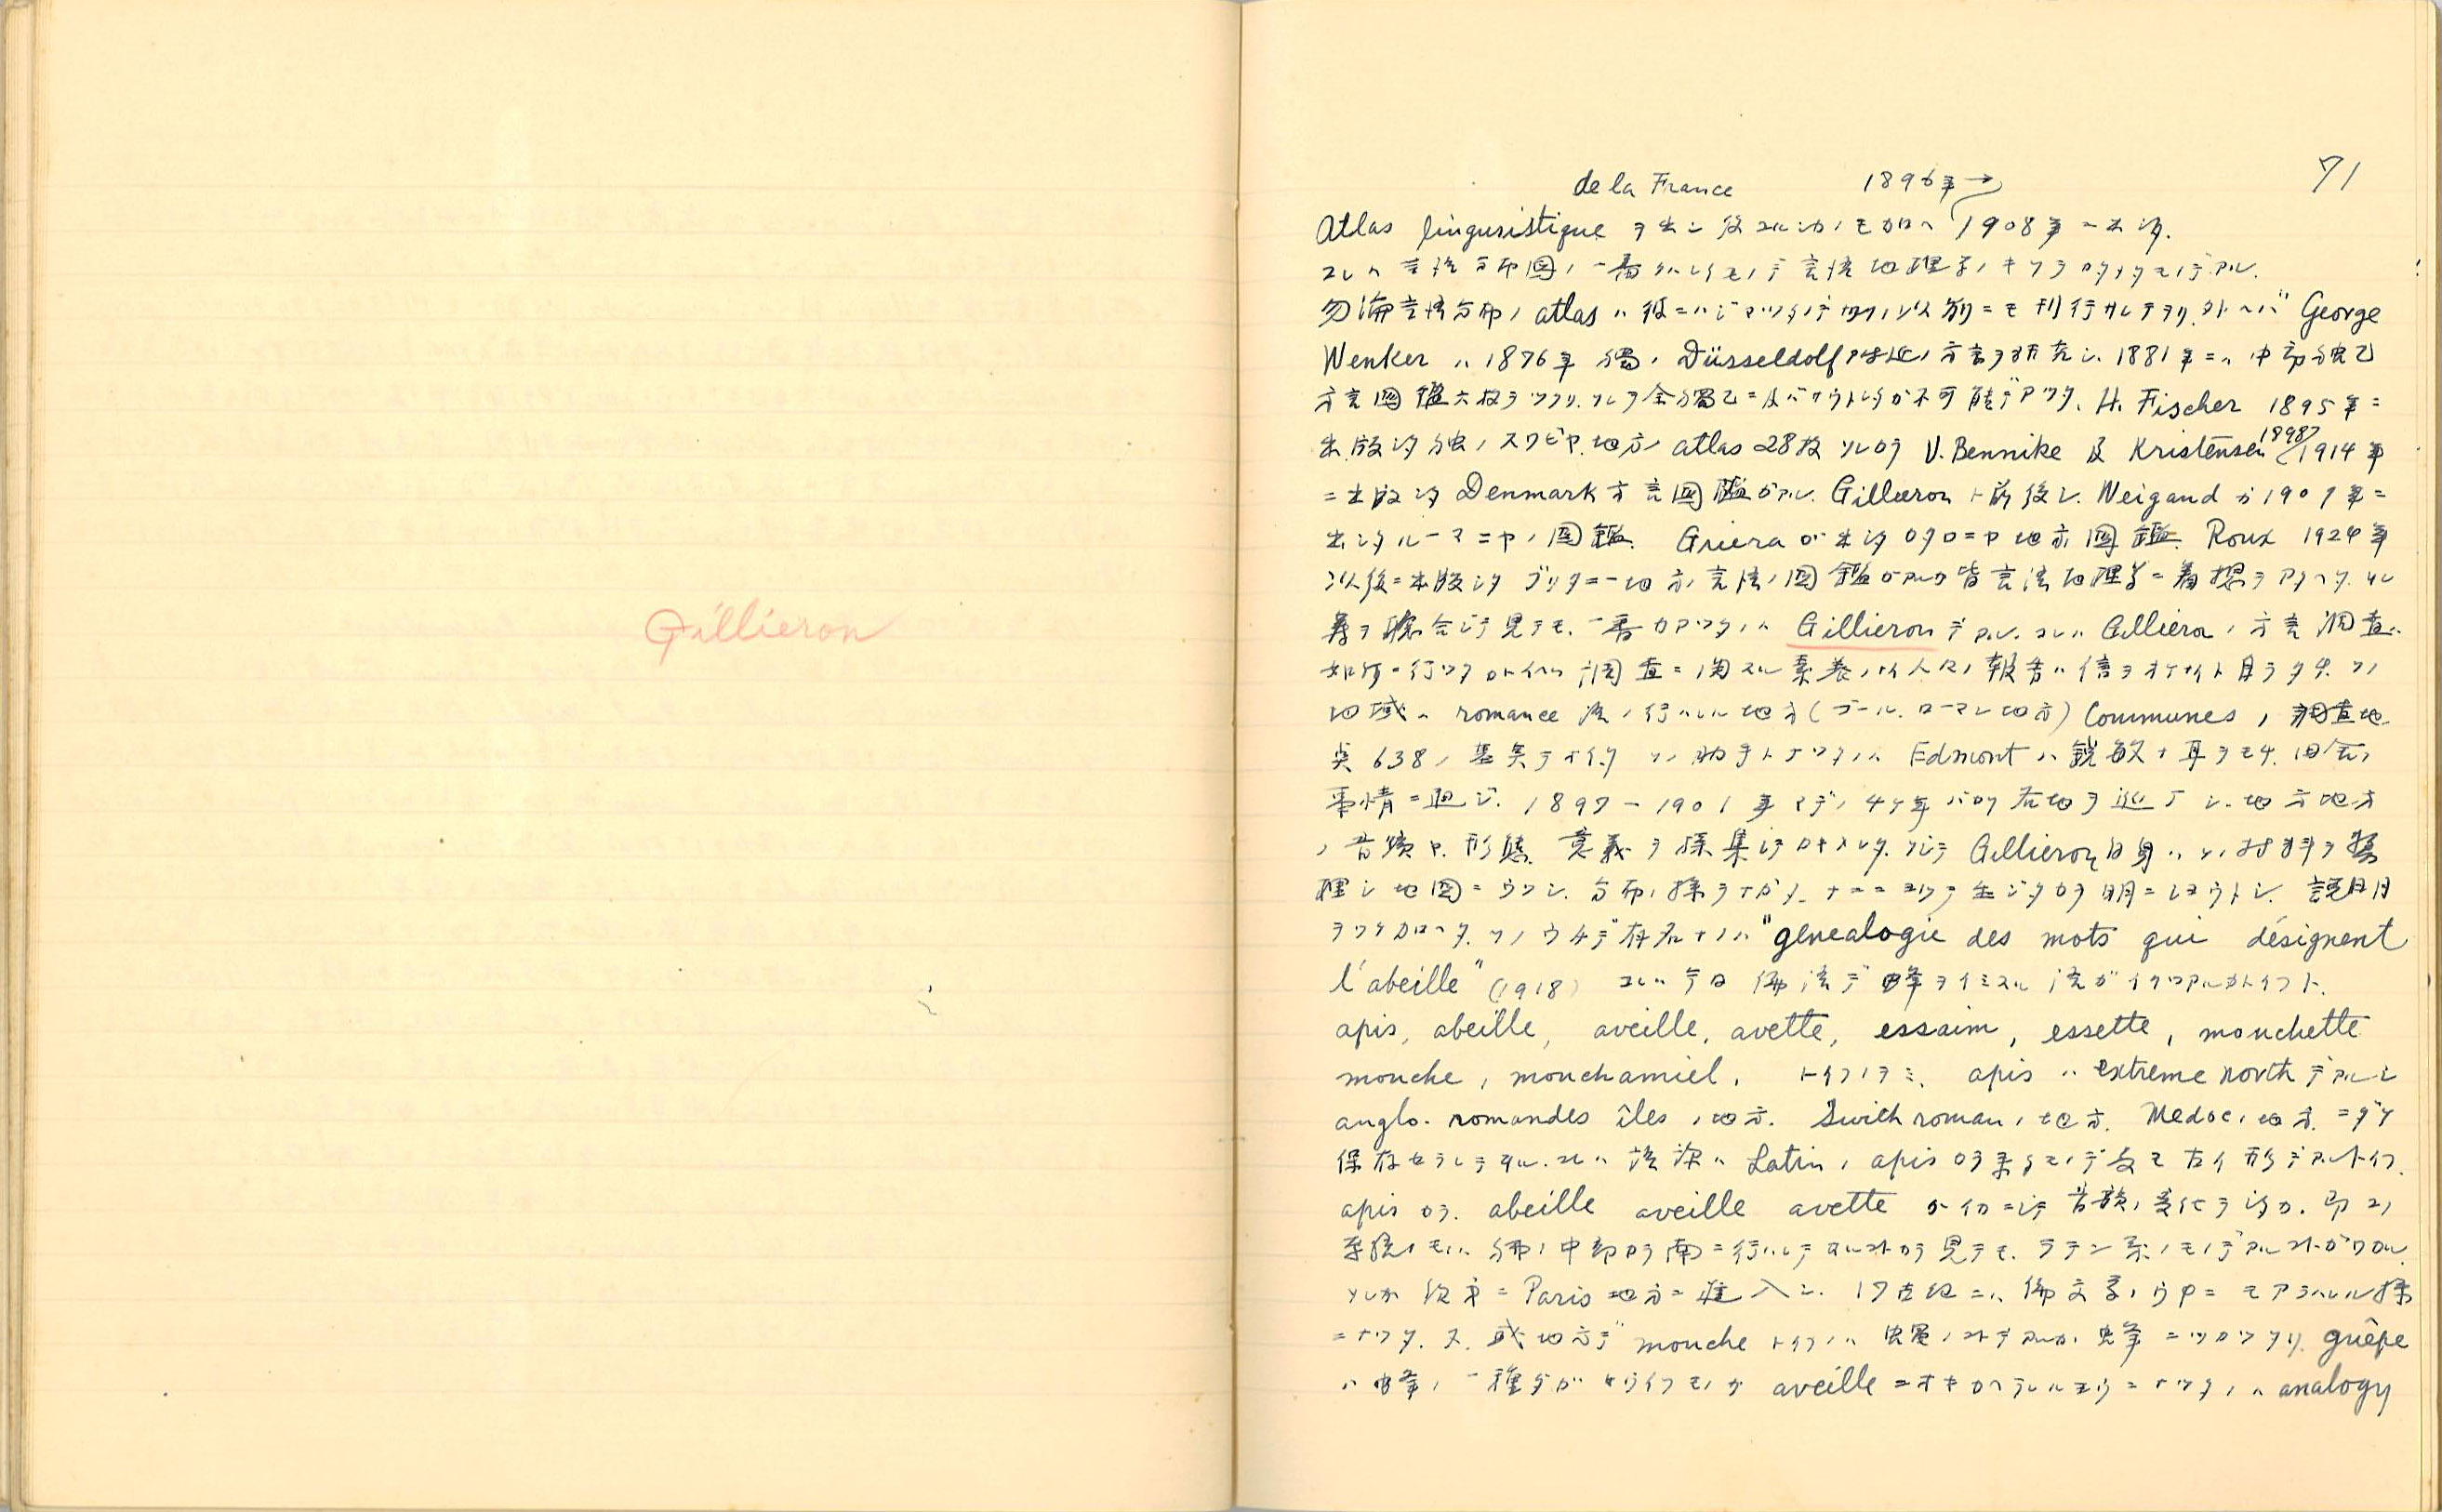 Gillieron
71
de la France 1896年→
Atlas linguistique ヲ出シ後コルシカノモ加ヘ 1908年ニ出シタ.
コレハ言語分布図ノ一番クハシイモノデ言語地理学ノキソヲカタメタモノデアル.
勿論言語分布ノ atlas ハ彼ニハジマツタノデナク,ソレ以前ニモ刊行サレテヲリ.タトヘバ George
Wenker ハ 1876年 獨ノ Düsseldolf 附近ノ方言ヲ研究シ. 1881年ニハ中部独乙
方言図鑑六枚ヲツクリ.ソレヲ全獨乙ニ及バサウトシタガ不可能デアツタ. H. Fischer 1895年ニ
出版シタ独ノスワビヤ地方ノ atlas 28枚 ソレカラ V. Bennike 及 Kristensen 1898→1914年
ニ出版シタ Denmark 方言図鑑ガアル. Gillieron ト前後シ. Weigand ガ 1909年ニ
出シタルーマニヤノ図鑑. Griera ガ出シタカタロニヤ地方図鑑. Roux 1924年
以後ニ出版シタブリタニー地方ノ言語ノ図鑑ガアルガ皆言語地理学ニ着想ヲアタヘタ. ソレ
等ヲ綜合シテ見テモ.一番カアツタノハ Gillieron デアル. コレハ Gillieron ノ方言調査ハ
如何ニ行ツタカトイヘバ調査ニ関スル素養ノナイ人々ノ報告ハ信ヲオケナイト自ラタチ. ソノ
地域ハ romance 語ノ行ハレル地方(ゴール.ローマン地方) Communes ノ調査地
点 638ノ基点ヲオイタ ソノ助手トナツタノハ Edmont ハ鋭敏ナ耳ヲモチ.田舎ノ
事情ニ通ジ. 1897-1901年マデノ4ケ年バカリ各地ヲ巡リシ.地方地方
ノ音韻ヤ.形態.意義ヲ採集シテカキトメタ. ソシテ Gillieron 自身ハソノ材料ヲ整
理シ地図ニウツシ.分布ノ様ヲナガメ.ナニニヨツテ生ジタカヲ明ニシヨウトシ.説明
ヲツケ加ヘタ. ソノウチデ有名ナノハ "genealogie des mots qui désignent
l'abeille" (1918) コレハ今日佛語デ蜂ヲイミスル語ガイクツアルカトイフト.
apis, abeille, aveille, avette, essaim, essette, mouchette
mouche, mouchamiel, トイフノヲミ. apis ハ extreme north デアルシ
anglo-romandes îles ノ地方. Swith roman ノ地方. Medoc ノ地方ニダケ
保存セラレテヰル. コレハ語源ハ Latin ノ apis カラ来タモノデ最モ古イ形デアルトイフ.
apis カラ. abeille aveille avette ガイカニシテ音韻ノ変化ヲシタカ. 即コノ
系統ノモノハ分布ノ中部カラ南ニ行ハレテヰルコトカラ見テモ. ラテン系ノモノデアルコトガワカル.
ソレガ後来ニ Paris 地方ニ進入シ. 17世紀ニハ佛文学ノウチニモアラハレル様
ニナツタ. 又.或地方デ mouche トイフノハ 蝿ノコトデアルガ,蜂ニツカツタリ. guêpe
ハ蜂ノ一種ダガサウイフモノガ aveille ニオキカヘラレルヨウニナツタノハ analogy